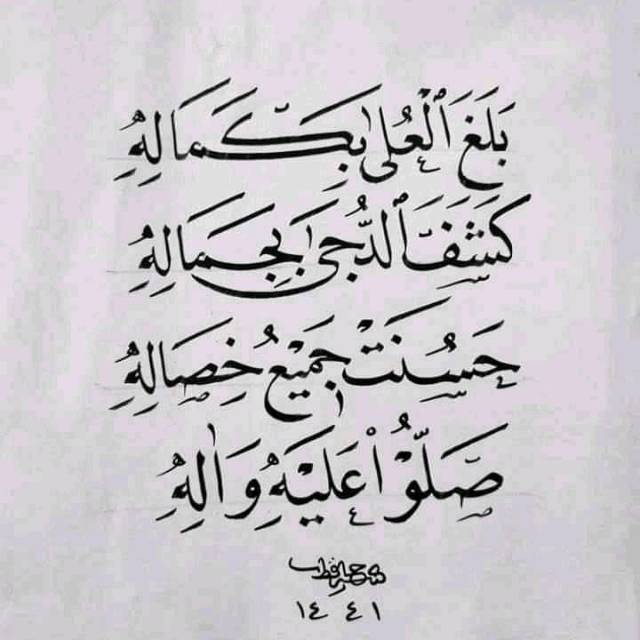 بَلَغَ ٱلْعُلىٰ بِكَمَالِهِ
كَشَفَ ٱلدُّجىٰ بِجَمَالِهِ
حَسُنَتْ جَمِيْعُ خِصَالِهِ
صَلُّوْا عَلَيْهِ وَاٰلِهِ
١٤٤١